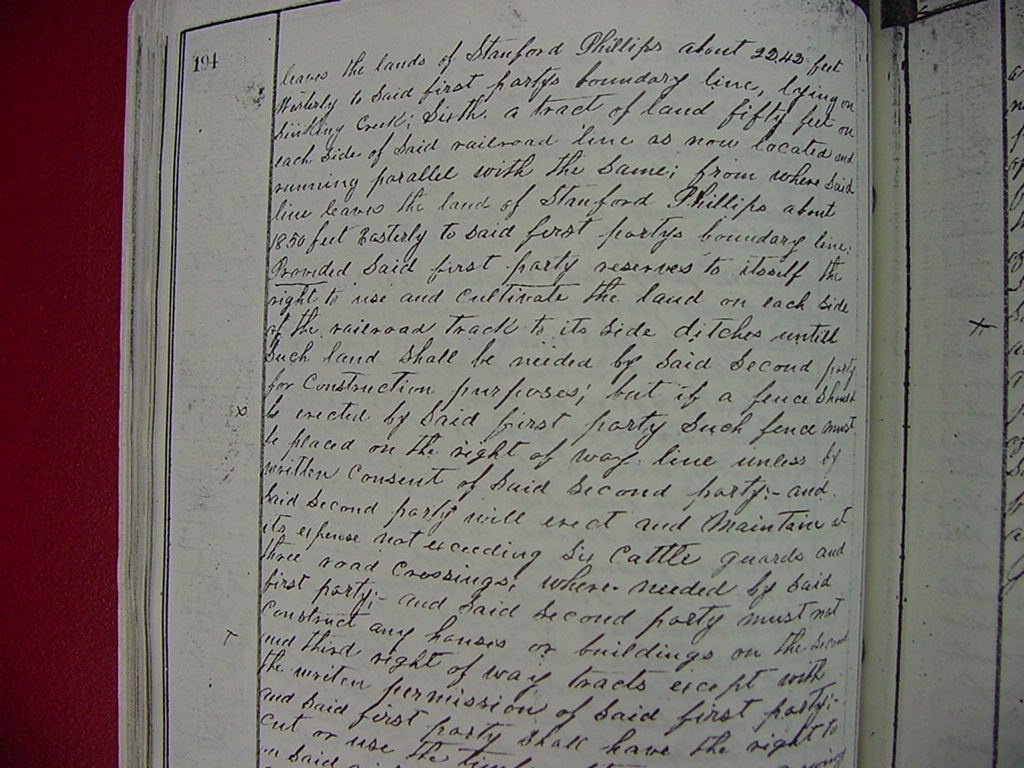 194
leaves the lands of Stanford Phillips about 2242 feet
Westerly to said first partys boundary line, lying on
Sinking Creek; Sixth. a tract of land fifty feet on
each side of said railroad line as now located and
running parallel with the same; from where said
line leaves the land of Stanford Phillips about
1850 feet Easterly to said first partys boundary line;
Provided said first party reserves to itself the
right to use and cultivate the land on each side
of the railroad track to its side ditches untill
such land shall be needed by said second party
for construction purposes; but if a fence should
be erected by said first party such fence must
be placed on the right of way line unless by
written consent of said second party:- and
said second party will erect and maintain at
its expense not exceeding six cattle guards and
three road crossings; where needed by said
first party;- and said second party must not
construct any houses or buildings on the second
and third right of way tracts except with
the writen permission of said first party;-
and said first party shall have the right to
cut or use the
on said